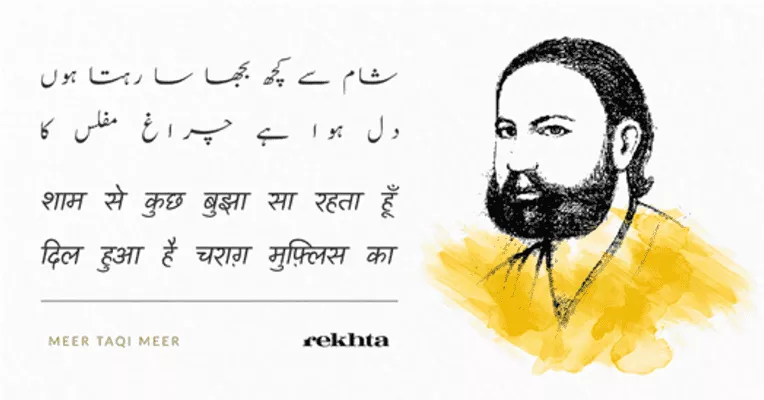 شام سے کچھ بجھا سا رہتا ہوں
دل ہوا ہے چراغ مفلس کا
शाम से कुछ बुझा सा रहता हूँ
दिल हुआ है चराग़ मुफ़्लिस का
MEER TAQI MEER
rekhta